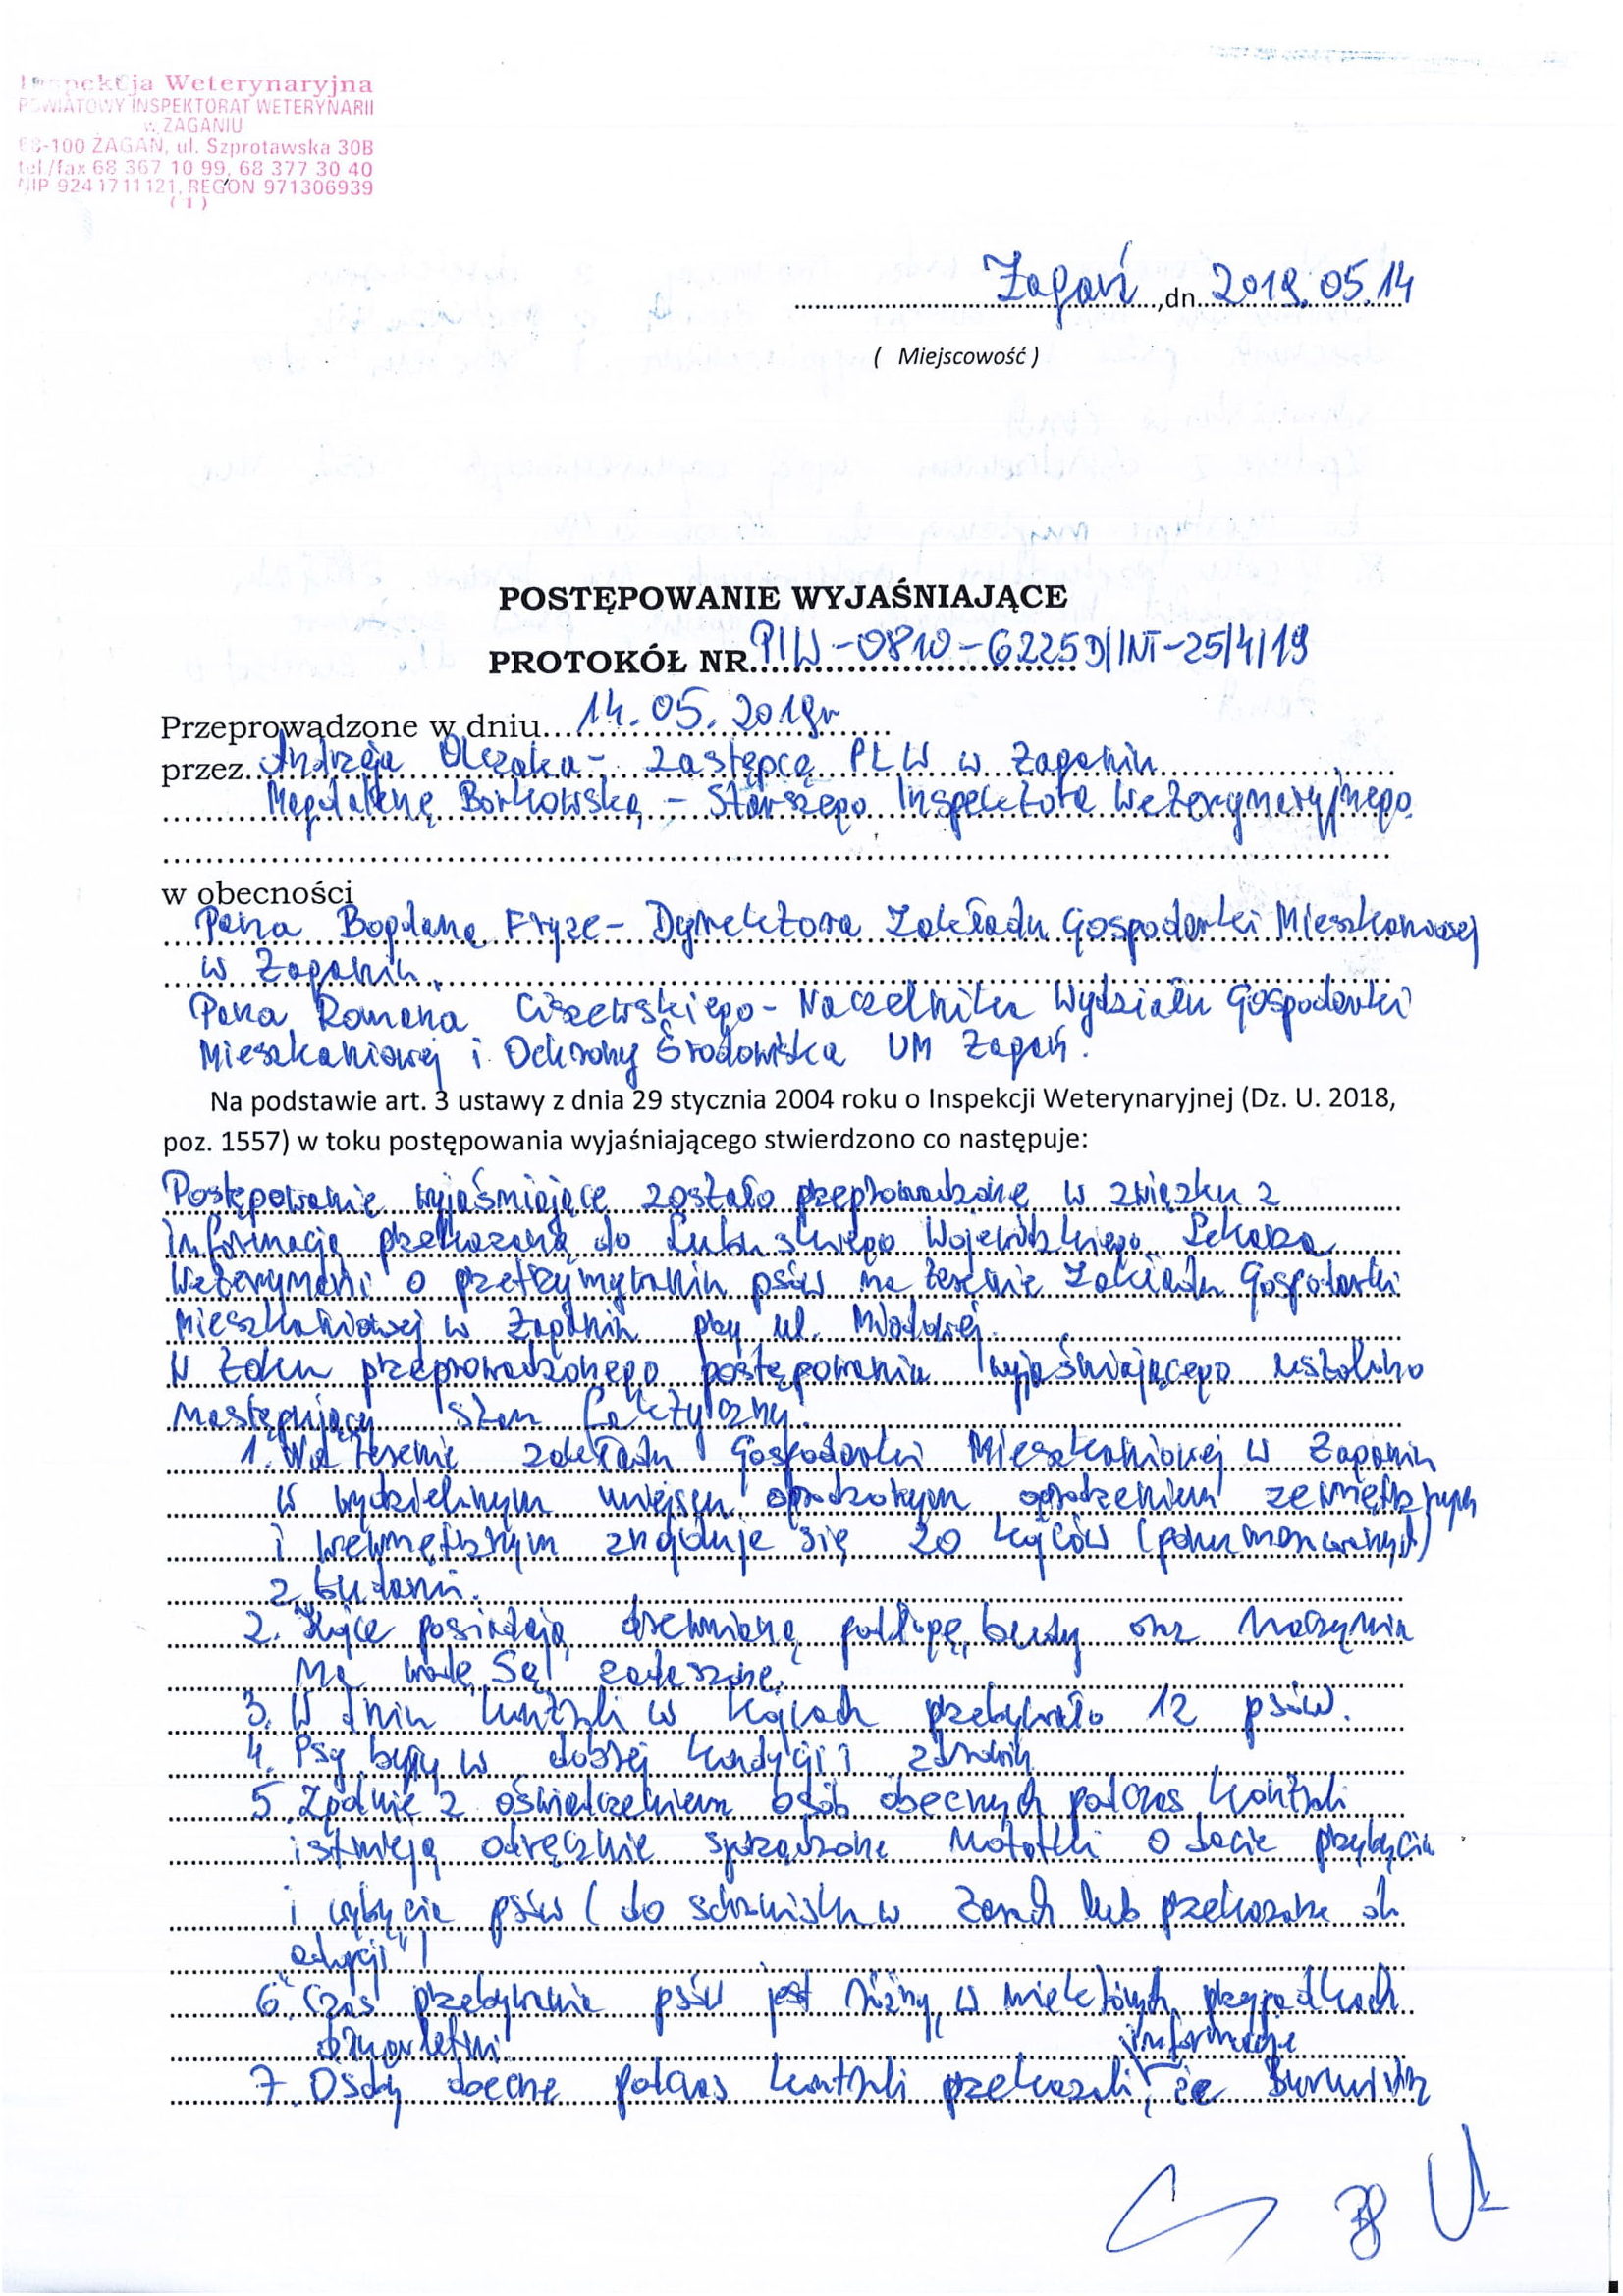 Inspekcja Weterynaryjna
POWIATOWY INSPEKTORAT WETERYNARII
w ŻAGANIU
68-100 ŻAGAŃ, ul. Szprotawska 30B
tel./fax 68 367 10 99, 68 377 30 40
NIP 9241711121, REGON 971306939
( 1 )
Żagań, dn. 2019.05.14
( Miejscowość )
POSTĘPOWANIE WYJAŚNIAJĄCE
PROTOKÓŁ NR PIW-0810-6225D/INT-25/4/19
Przeprowadzone w dniu 14.05.2019r
przez Andrzeja Olczaka - zastępcę PLW w Żaganiu
Magdalenę Borkowską - Starszego Inspektora Weterynaryjnego
w obecności
Pana Bogdana Fryze - Dyrektora Zakładu Gospodarki Mieszkaniowej
w Żaganiu,
Pana Romana Ciszewskiego - Naczelnika Wydziału Gospodarki
Mieszkaniowej i Ochrony Środowiska UM Żagań.
Na podstawie art. 3 ustawy z dnia 29 stycznia 2004 roku o Inspekcji Weterynaryjnej (Dz. U. 2018,
poz. 1557) w toku postępowania wyjaśniającego stwierdzono co następuje:
Postępowanie wyjaśniające zostało przeprowadzone w związku z
informacją przekazaną do Lubuskiego Wojewódzkiego Lekarza
Weterynarii o przetrzymywaniu psów na terenie Zakładu Gospodarki
Mieszkaniowej w Żaganiu przy ul. Miodowej.
W toku przeprowadzonego postępowania wyjaśniającego ustalono
następujący stan faktyczny:
1. Na terenie zakładu Gospodarki Mieszkaniowej w Żaganiu
w wydzielonym miejscu ogrodzonym ogrodzeniem zewnętrznym
i wewnętrznym znajduje się 20 kojców (ponumerowanych)
z budami.
2. Kojce posiadają drewnianą podłogę, budy oraz naczynia
na wodę. Są zadaszone.
3. W dniu kontroli w kojcach przebywało 12 psów.
4. Psy były w dobrej kondycji i zdrowiu
5. Zgodnie z oświadczeniem osób obecnych podczas kontroli
istnieją odręcznie sporządzone notatki o dacie przybycia
i wybycia psów (do schroniska w Żarach lub przekazane do
"adopcji")
6. Czas przebywania psów jest różny, w niektórych przypadkach
informacje
7. Osoby obecne podczas kontroli przekazali, że Burmistrz